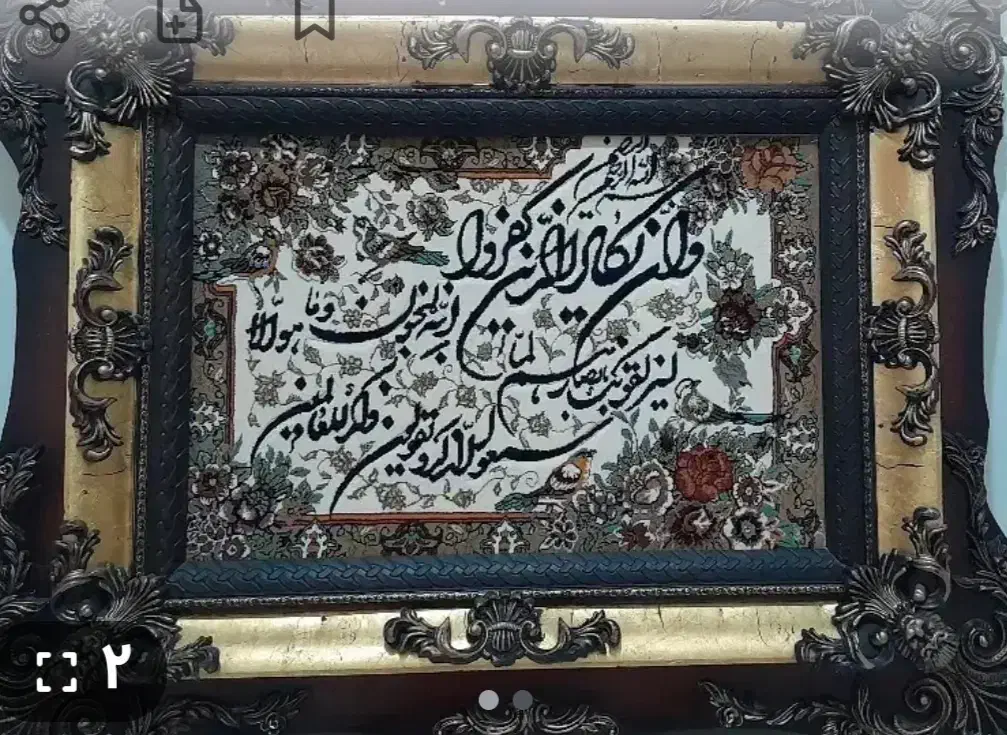 بسم الله الرحمن الرحیم
وان یکاد الذین کفروا
لیزلقونک بابصارهم لما
سمعوا الذکر ویقولون
انه لمجنون وما هو الا
ذکر للعالمین
۲